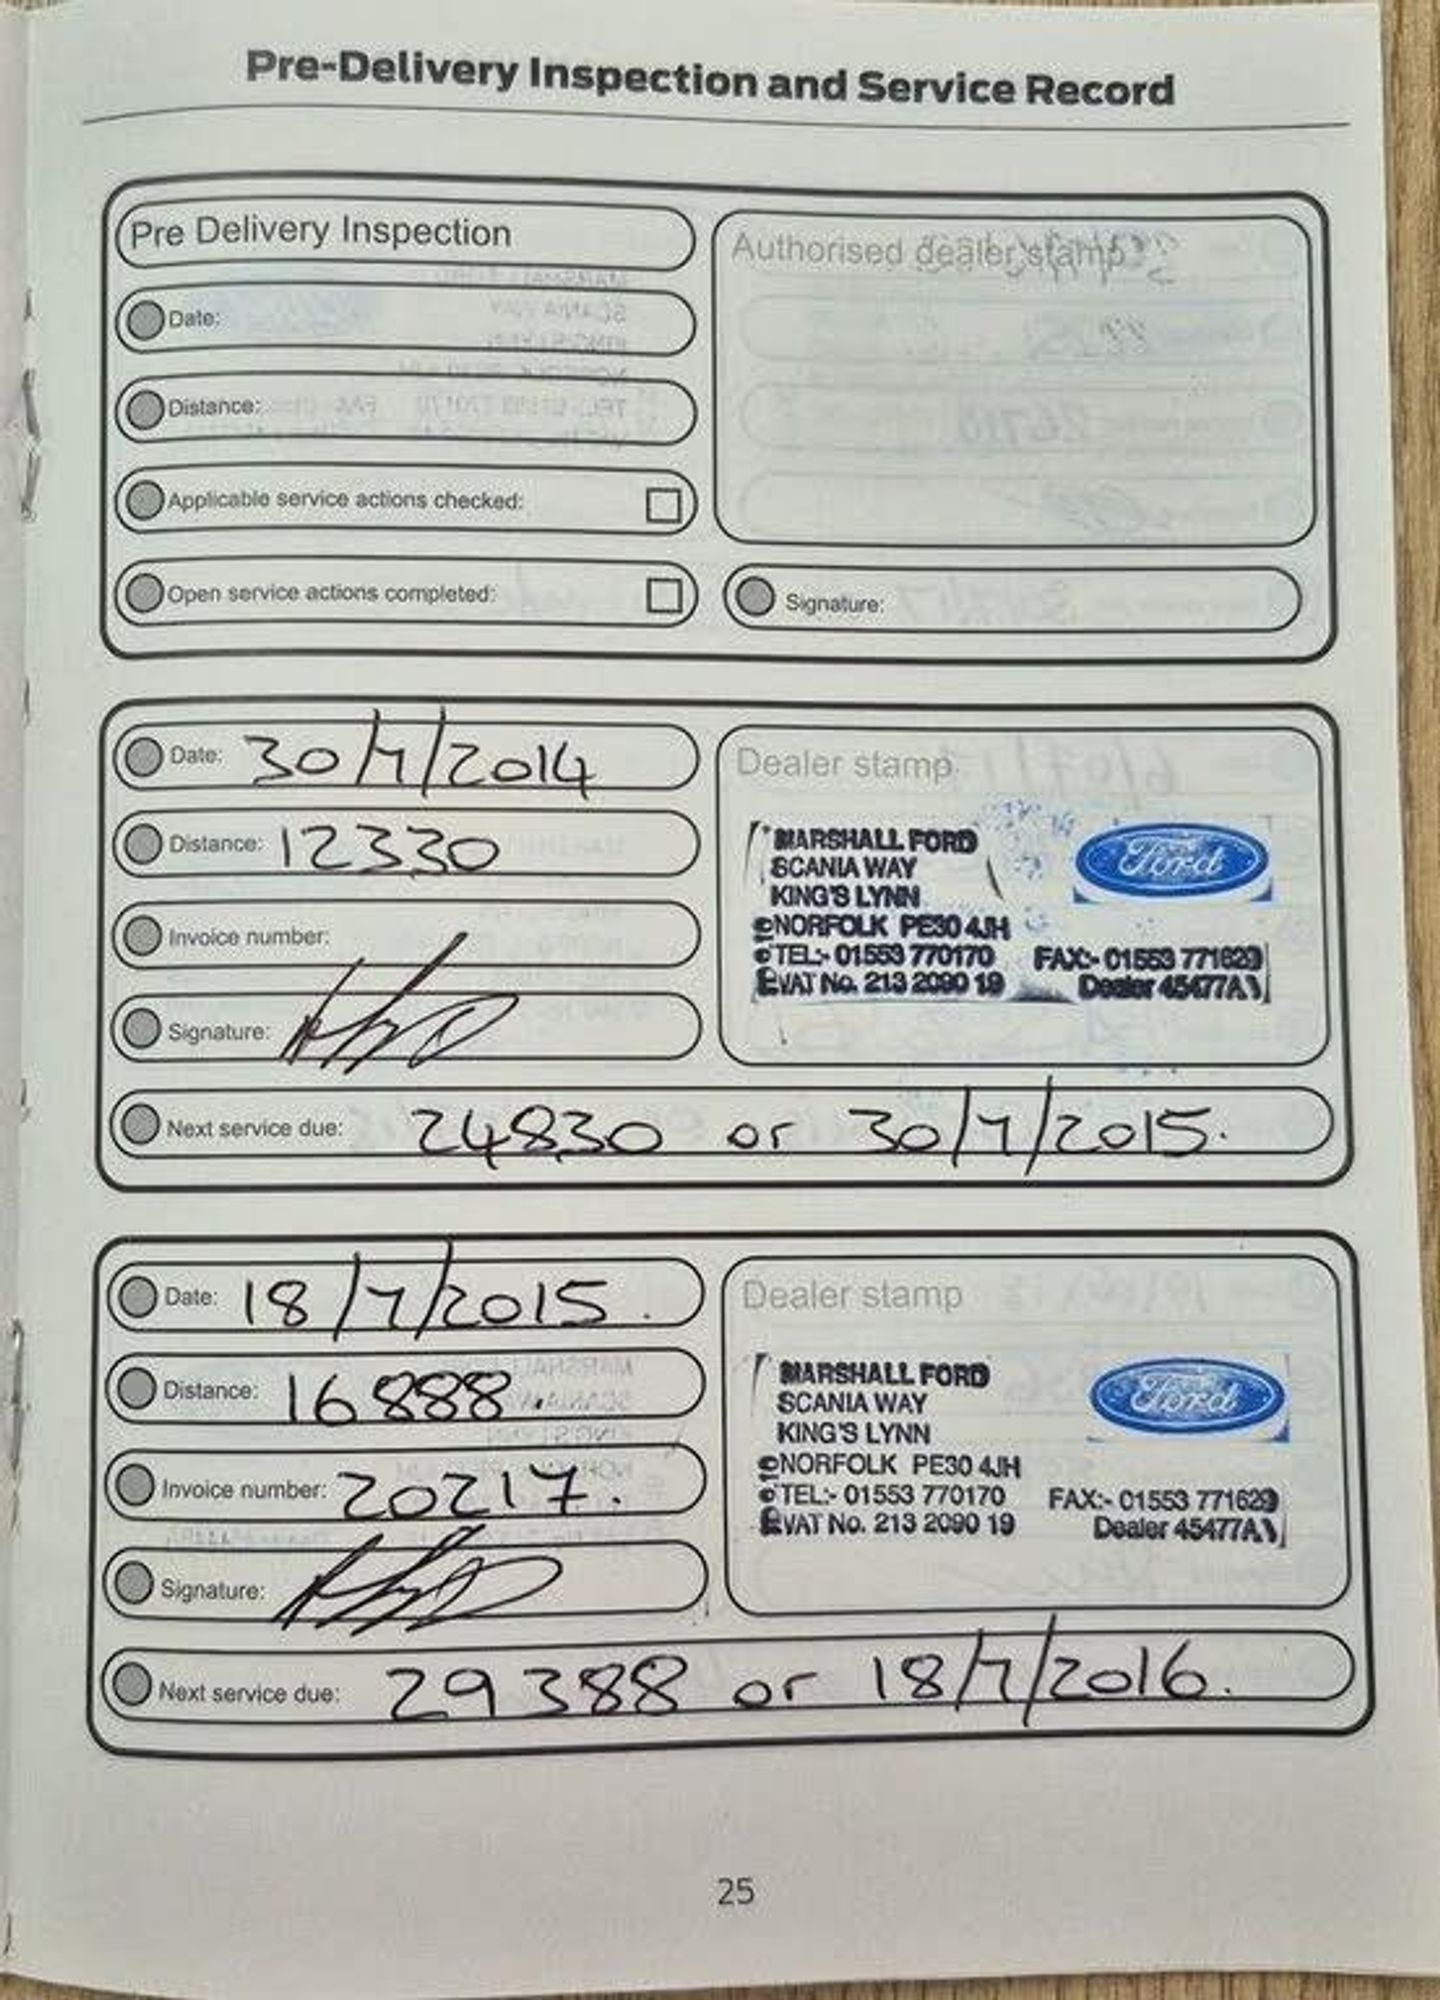 Pre-Delivery Inspection and Service Record
Pre Delivery Inspection
Authorised dealer stamp
Date:
Distance:
Applicable service actions checked:
Open service actions completed:
Signature:
Date: 30/7/2014
Distance: 12330
Invoice number:
Signature:
Dealer stamp
MARSHALL FORD
SCANIA WAY
KING'S LYNN
NORFOLK PE30 4JH
TEL:- 01553 770170 FAX:- 01553 771629
VAT No. 213 2090 19 Dealer 45477A
Ford
Next service due: 24830 or 30/7/2015.
Date: 18/7/2015.
Distance: 16888.
Invoice number: 20217.
Signature:
Dealer stamp
MARSHALL FORD
SCANIA WAY
KING'S LYNN
NORFOLK PE30 4JH
TEL:- 01553 770170 FAX:- 01553 771629
VAT No. 213 2090 19 Dealer 45477A
Ford
Next service due: 29388 or 18/7/2016.
25